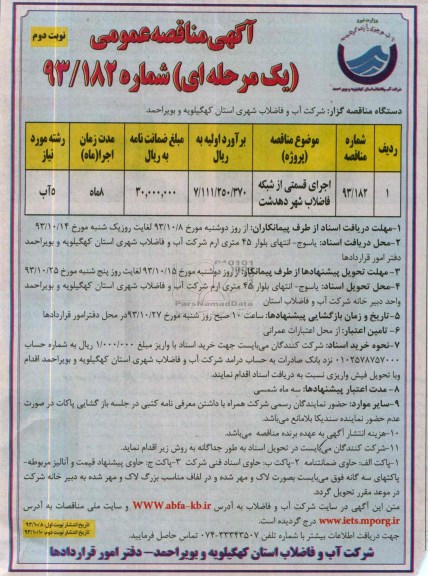 نوبت دوم
آگهی مناقصه عمومی
(یک مرحله ای) شماره ۹۳/۱۸۲
وزارت نیرو
شرکت آب و فاضلاب شهری استان کهگیلویه و بویراحمد
دستگاه مناقصه گزار: شرکت آب و فاضلاب شهری استان کهگیلویه و بویراحمد
ردیف | شماره مناقصه | موضوع مناقصه (پروژه) | برآورد اولیه به ریال | مبلغ ضمانت نامه به ریال | مدت زمان اجرا(ماه) | رشته مورد نیاز
۱ | ۹۳/۱۸۲ | اجرای قسمتی از شبکه فاضلاب شهر دهدشت | ۷/۱۱۱/۲۵۰/۳۷۰ | ۳۰,۰۰۰,۰۰۰ | ۸ماه | ۵آب
۱-مهلت دریافت اسناد از طرف پیمانکاران: از روز دوشنبه مورخ ۹۳/۱۰/۸ لغایت روزیک شنبه مورخ ۹۳/۱۰/۱۴
۲-محل دریافت اسناد: یاسوج- انتهای بلوار ۴۵ متری ارم شرکت آب و فاضلاب شهری استان کهگیلویه و بویراحمد
دفتر امور قراردادها
۳- مهلت تحویل پیشنهادها از طرف پیمانکار: از روز دوشنبه مورخ ۹۳/۱۰/۱۵ لغایت روز پنج شنبه مورخ ۹۳/۱۰/۲۵
۴-محل تحویل اسناد: یاسوج- انتهای بلوار ۴۵ متری ارم شرکت آب و فاضلاب شهری استان کهگیلویه و بویراحمد
واحد دبیر خانه شرکت آب و فاضلاب استان
۵-تاریخ و زمان بازگشایی پیشنهادها: ساعت ۱۰ صبح روز شنبه مورخ ۹۳/۱۰/۲۷در محل دفترامور قراردادها
۶- تامین اعتبار: از محل اعتبارات عمرانی
۷-نحوه خرید اسناد: شرکت کنندگان می‌بایست جهت خرید اسناد با واریز مبلغ ۱/۰۰۰/۰۰۰ ریال به شماره حساب
۰۱۰۲۵۷۸۷۵۷۰۰۰ نزد بانک صادرات به حساب درآمد شرکت آب و فاضلاب شهری استان کهگیلویه و بویراحمد اقدام
وبا تحویل فیش واریزی نسبت به دریافت اسناد اقدام نمایند.
۸- مدت اعتبار پیشنهادها: سه ماه شمسی
۹-سایر موارد: حضور نمایندگان رسمی شرکت همراه با داشتن معرفی نامه کتبی در جلسه باز گشایی پاکات در صورت
عدم حضور نماینده سندیکا بلامانع می‌باشد.
۱۰-هزینه انتشار آگهی به عهده برنده مناقصه می‌باشد.
۱۱-شرکت کنندگان می‌بایست در تحویل اسناد به طور جداگانه به روش زیر اقدام نماید.
۱-پاکت الف: حاوی ضمانتنامه ۲-پاکت ب: حاوی اسناد فنی شرکت ۳-پاکت ج: حاوی پیشنهاد قیمت و آنالیز مربوطه-
پاکتهای سه گانه فوق می‌بایست بصورت لاک و مهر شده و در لفاف مناسب بزرگ لاک و مهر شده به دبیر خانه شرکت
در موعد مقرر تحویل گردد.
متن این آگهی در سایت شرکت آب و فاضلاب به آدرس WWW.abfa-kb.ir و سایت ملی مناقصات به آدرس
www.iets.mporg.ir درج گردیده است.
جهت دریافت اطلاعات بیشتر با شماره تلفن ۰۷۴-۳۳۳۴۳۵۰۷ تماس حاصل فرمایید.
تاریخ انتشار نوبت اول: ۹۳/۱۰/۸
تاریخ انتشار نوبت دوم: ۹۳/۱۰/۱۰
شرکت آب و فاضلاب استان کهگیلویه و بویراحمد- دفتر امور قراردادها
ParsNamadData